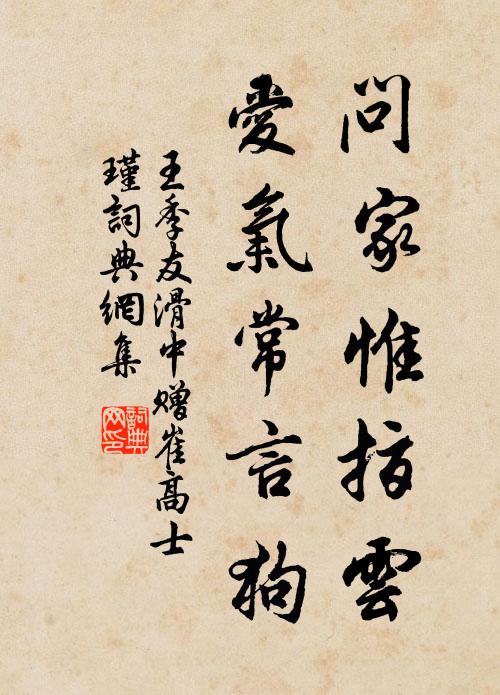 問家惟指雲
愛氣常言狗
王季友滑中贈崔高士
瑾詞典網集
詞典网印